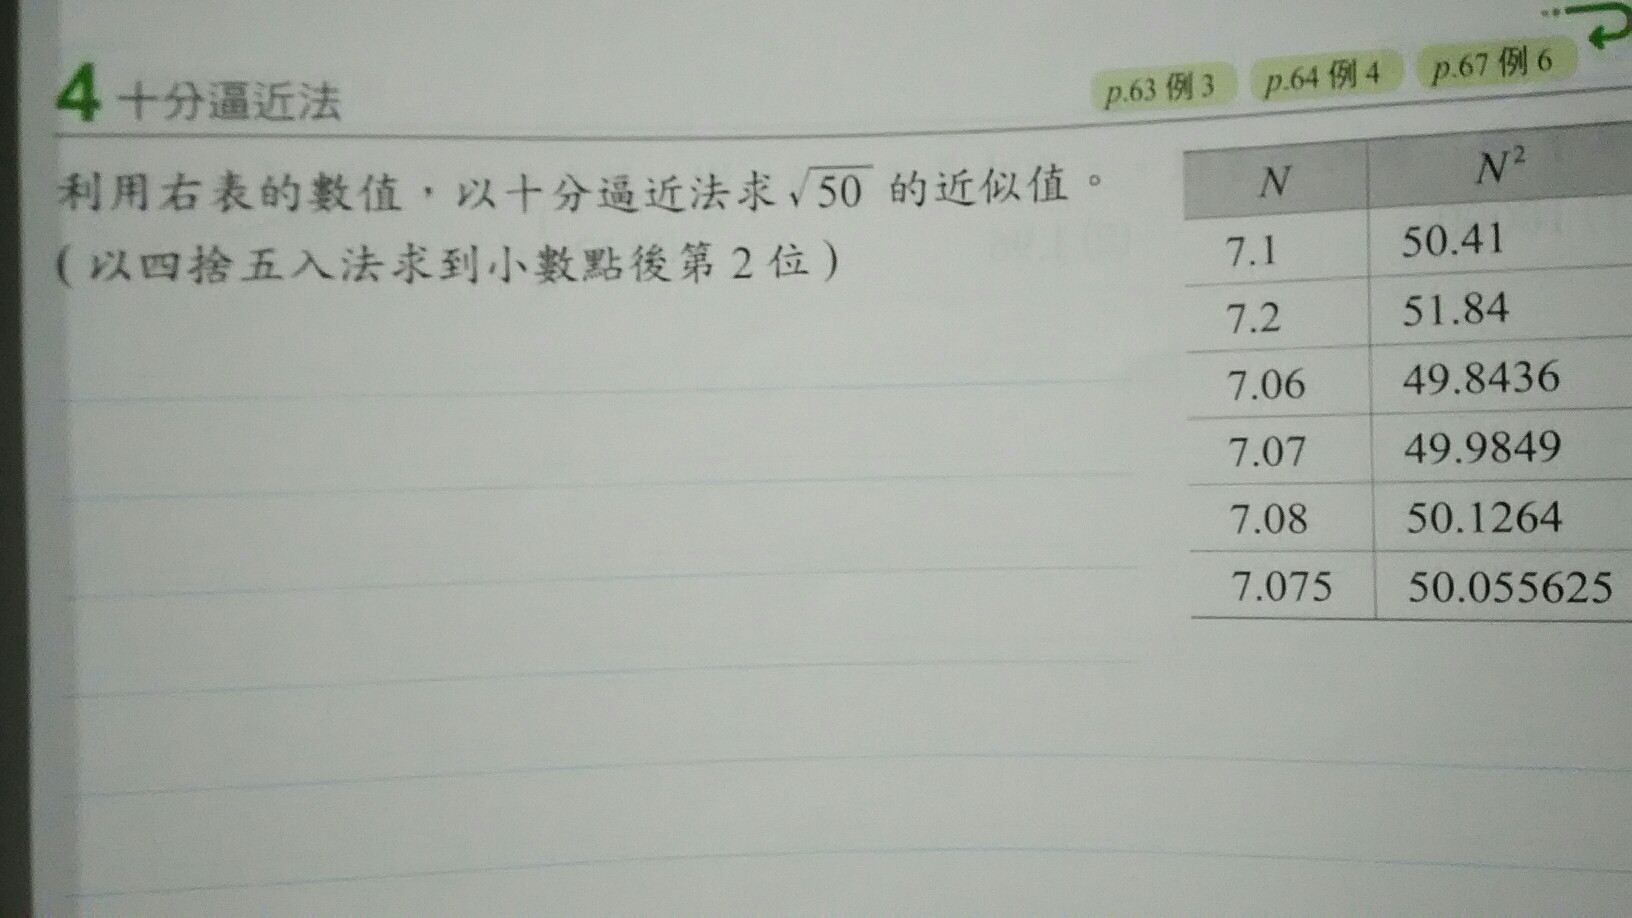 4 十分逼近法
p.63 例 3 p.64 例 4 p.67 例 6
利用右表的數值，以十分逼近法求 √50 的近似值。
(以四捨五入法求到小數點後第 2 位)
N N²
7.1 50.41
7.2 51.84
7.06 49.8436
7.07 49.9849
7.08 50.1264
7.075 50.055625